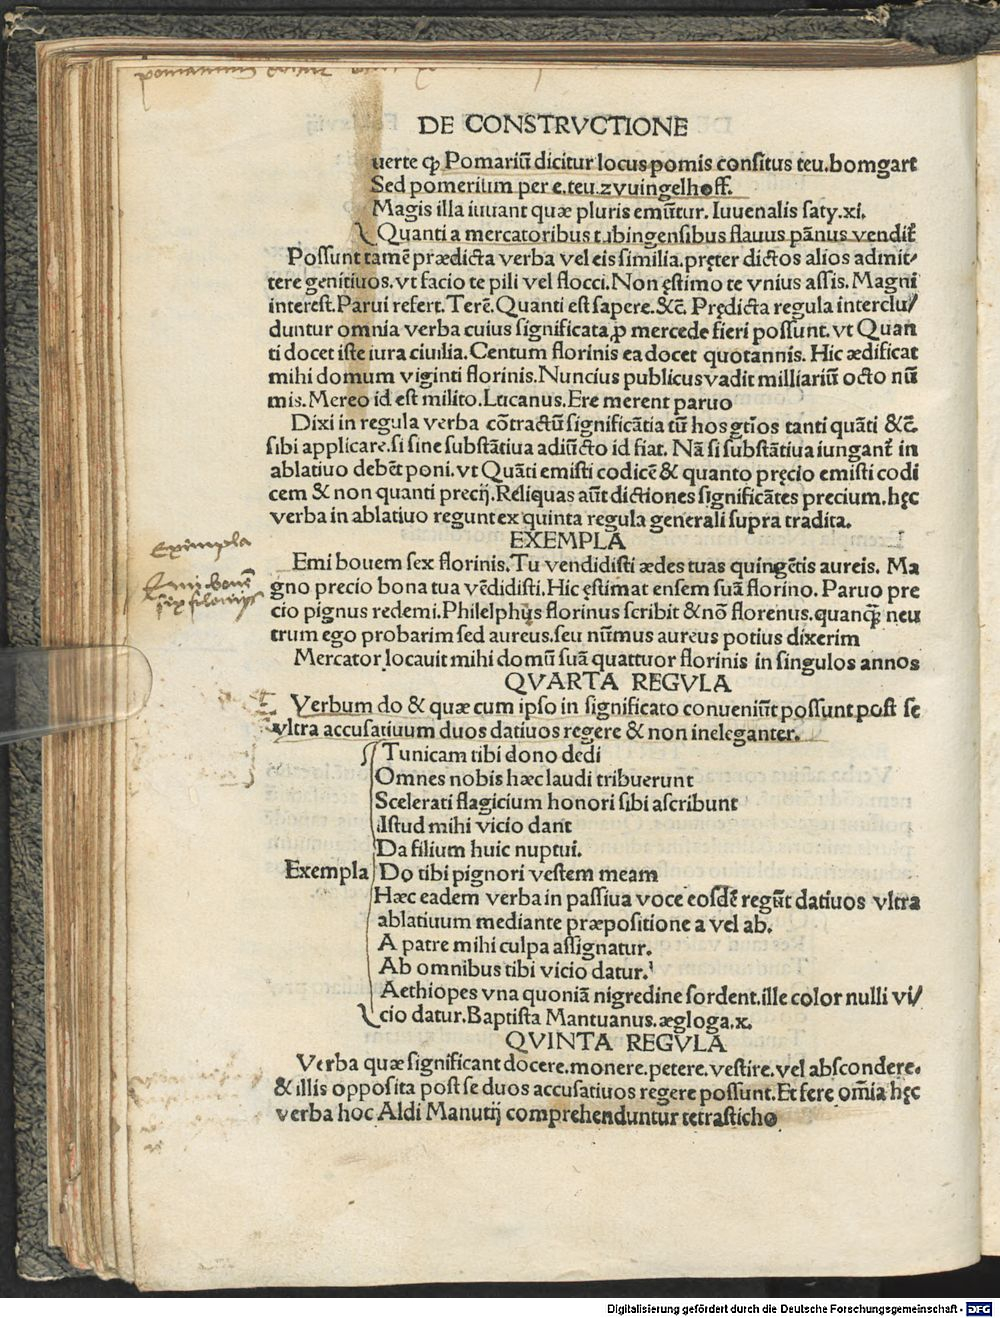 pomarium
DE CONSTRVCTIONE
uerte ꝙ Pomariū dicitur locus pomis consitus teu. bomgart
Sed pomerium per e. teu. zvuingelhoff.
Magis illa iuuant quæ pluris emūtur. Iuuenalis saty. xi.
Quanti a mercatoribus tubingensibus flauus pānus vendit᷑
Possunt tamē prædicta verba vel eis similia. pręter dictos alios admit/
tere genitiuos. vt facio te pili vel flocci. Non ęstimo te vnius assis. Magni
interest. Parui refert. Terē. Quanti est sapere. &c̄. Prędicta regula interclu/
duntur omnia verba cuius significata ꝓ mercede fieri possunt. vt Quan
ti docet iste iura ciuilia. Centum florinis ea docet quotannis. Hic ædificat
mihi domum viginti florinis. Nuncius publicus vadit milliariū octo nū
mis. Mereo id est milito. Lucanus. Ere merent paruo
Dixi in regula verba cōtractū significātia tū hos gtīos tanti quāti &c̄.
sibi applicare. si sine substātiua adiūcto id fiat. Nā si substātiua iungant᷑ in
ablatiuo debēt poni. vt Quāti emisti codicē & quanto pręcio emisti codi
cem & non quanti precij. Reliquas aūt dictiones significātes precium. hęc
verba in ablatiuo regunt ex quinta regula generali supra tradita.
EXEMPLA
Exempla
Emi bouem sex florinis. Tu vendidisti ædes tuas quingētis aureis. Ma
Emi bouē
gno precio bona tua vēdidisti. Hic ęstimat ensem suā florino. Paruo pre
sex florinis
cio pignus redemi. Philelphus florinus scribit & nō florenus. quanꝗ̄ neu
trum ego probarim sed aureus. seu nūmus aureus potius dixerim
Mercator locauit mihi domū suā quattuor florinis in singulos annos
QVARTA REGVLA
Verbum do & quæ cum ipso in significato conueniūt possunt post se
vltra accusatiuum duos datiuos regere & non ineleganter.
Tunicam tibi dono dedi
Omnes nobis hæc laudi tribuerunt
Scelerati flagicium honori sibi ascribunt
Istud mihi vicio dant
Da filium huic nuptui.
Exempla Do tibi pignori vestem meam
Hæc eadem verba in passiua voce eosdē regūt datiuos vltra
ablatiuum mediante præpositione a vel ab.
A patre mihi culpa assignatur.
Ab omnibus tibi vicio datur.
Aethiopes vna quoniā nigredine sordent. ille color nulli vi/
cio datur. Baptista Mantuanus. ægloga. x.
QVINTA REGVLA
Verba quæ significant docere. monere. petere. vestire. vel abscondere.
& illis opposita post se duos accusatiuos regere possunt. Et fere om̄ia hęc
verba hoc Aldi Manutij comprehenduntur tetrasticho
Digitalisierung gefördert durch die Deutsche Forschungsgemeinschaft - DFG